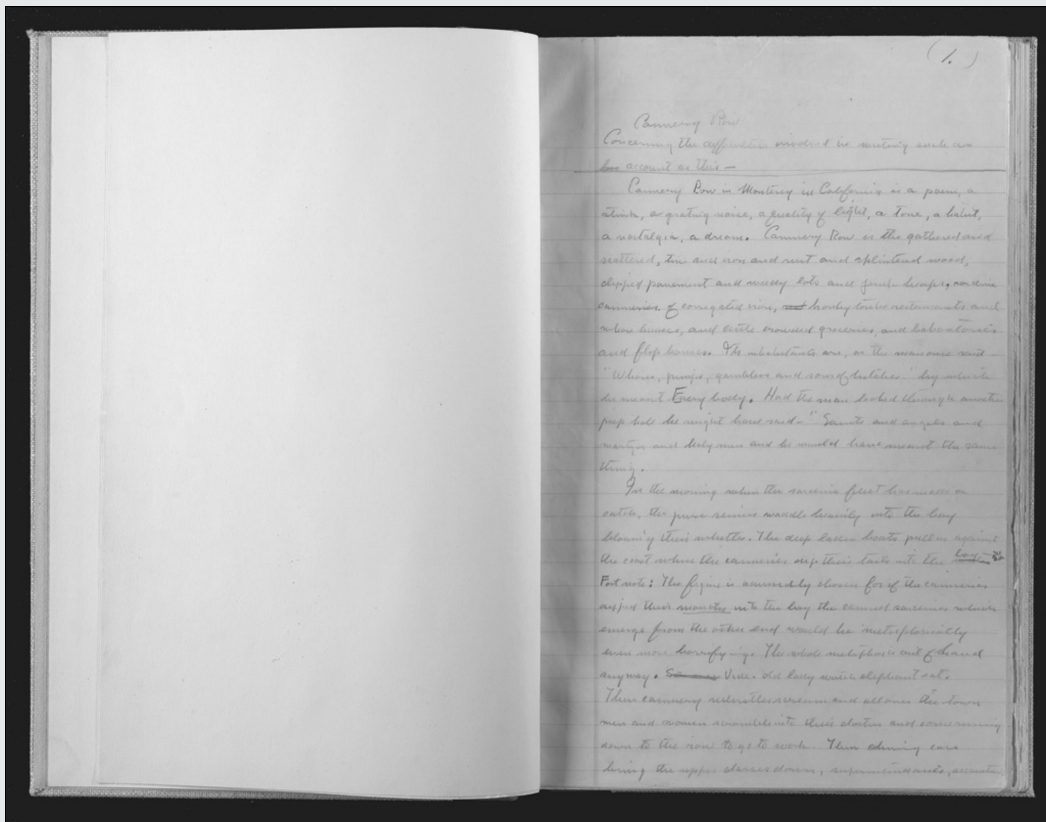 (1.)
Cannery Row
Concerning the difficulties involved in writing such an
account as this —
Cannery Row in Monterey in California is a poem, a
stink, a grating noise, a quality of light, a tone, a habit,
a nostalgia, a dream. Cannery Row is the gathered and
scattered, tin and iron and rust and splintered wood,
chipped pavement and weedy lots and junk heaps, sardine
canneries of corrugated iron, honky tonks restaurants and
whore houses, and little crowded groceries, and laboratories
and flop houses. Its inhabitants are, as the man once said
"Whores, pimps, gamblers and sons of bitches," by which
he meant Everybody. Had the man looked through another
peep hole he might have said - "Saints and angels and
martyrs and holy men and he would have meant the same
thing.
In the morning when the sardine fleet has made a
catch, the purse seiners waddle heavily into the bay
blowing their whistles. The deep laden boats pull in against
the coast where the canneries dip their tails into the bay
Foot note: The figure is advisedly chosen for if the canneries
dipped their mouths into the bay the canned sardines which
emerge from the other end would be metaphorically
even more horrifying. The whole metaphor out of hand
anyway. Vide. old lady watch elephant eat.
Then cannery whistles scream and all over the town
men and women scramble into their clothes and come running
down to the row to go to work. Then shining cars
bring the upper classes down, superintendants,